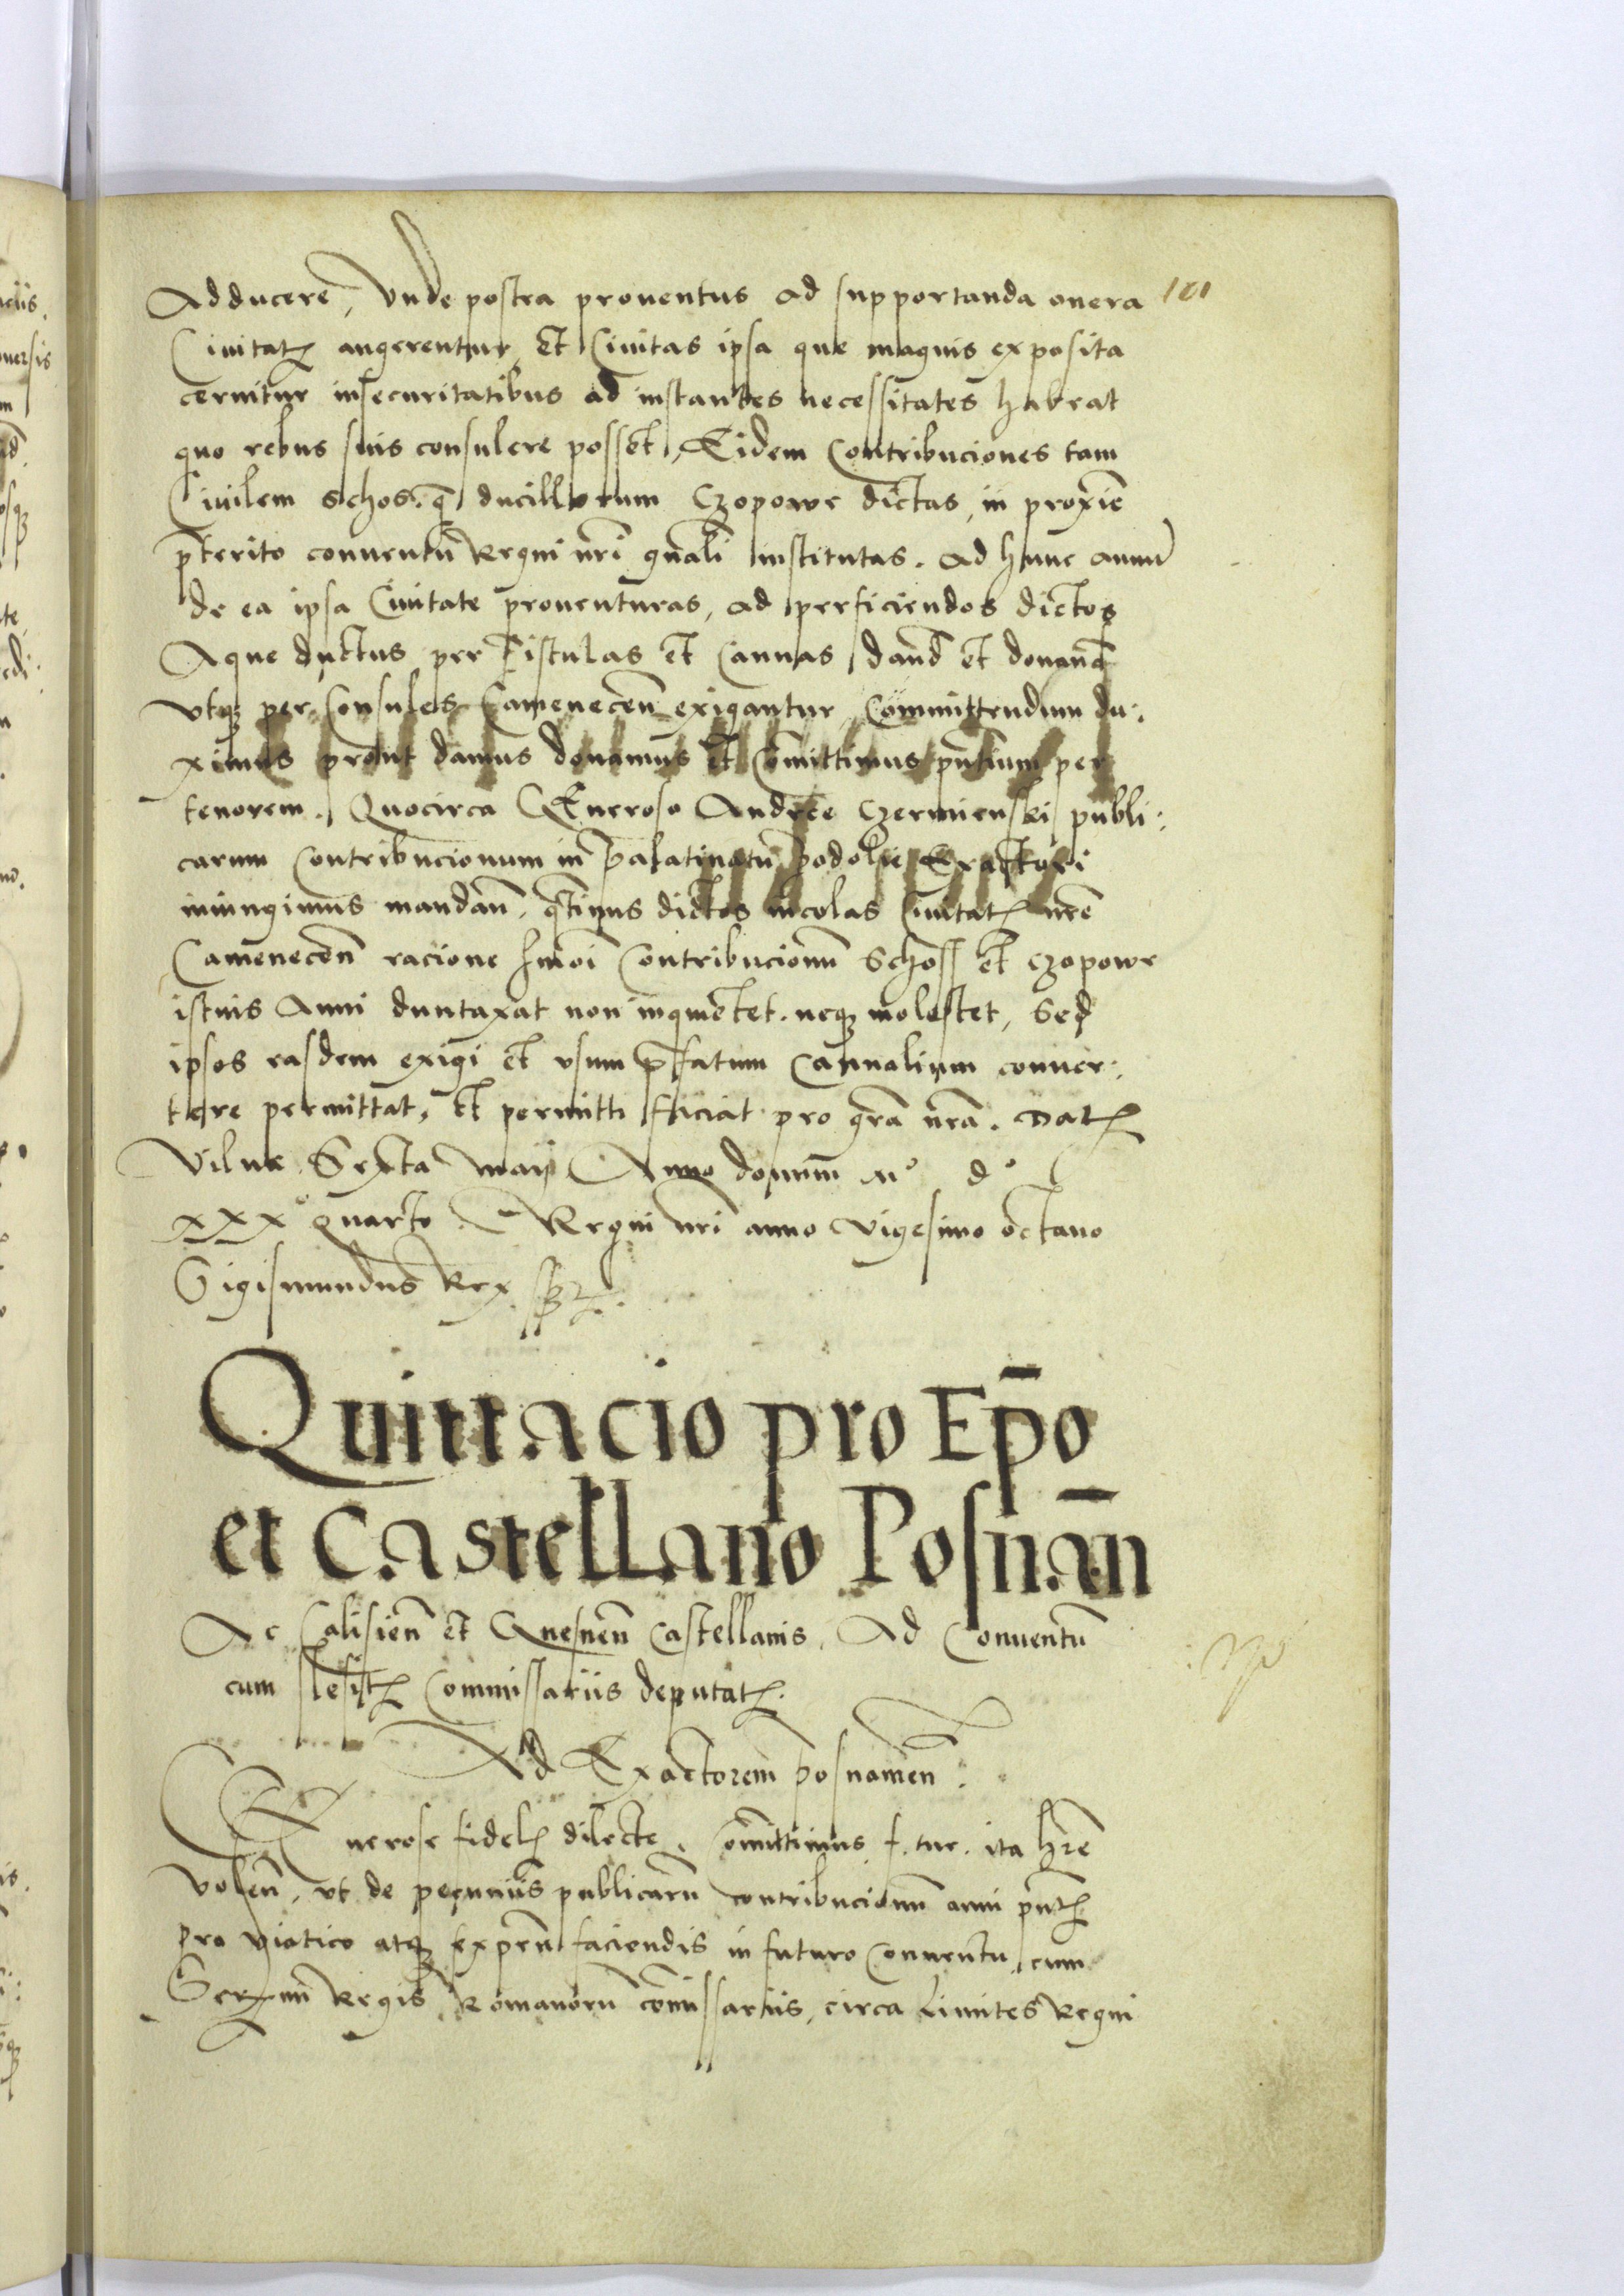 101
Adducere, Vnde postea prouentus ad supportanda onera
Ciuitatꝭ augerentur, Et Ciuitas ipsa que magnis exposita
cernitur insecuritatibus ad instantes necessitates habeat
quo rebus suis consulere posset, Eidem Contribuciones tam
Ciuilem schos. q̃ ducillorum Czopowe dictas, in proxīe
p̄terito conuentū Regni nr̄i gnāli institutas. Ad hunc annū
de ea ipsa Ciuitate prouenturas, ad perficiendos dictos
Aque ductus per Fistulas et Cannas dand̄ et donand̄
vtqꝫ per Consules Camenecen̄ exigantur, Committendum du:
ximus prout damus donamus et Cōmittimus pn̄tium per
tenorem. Quocirca Generoso Andree Czermienski publi:
carum Contribucionum in palatinatu podolie Exactori
iniungimus mandan̄. q̄tinus dictos incolas Ciuitatꝭ nr̄e
Camenecen̄ racione hmōi Contribucionū Schoss et Czopowe
istius Anni duntaxat non inquietet. neqꝫ molestet, Sed
ipsos easdem exigi et vsum p̄fatum Cannalium conuer:
tere permittat, et permitti faciat pro gr̄a nr̄a. Datꝭ
Vilne Sexta maij Anno domini M° d°
xxx° quarto. Regni nr̄i anno vigesimo octauo
Sigismundus Rex sspt.
Quittacio pro Ep̄o
et Castellano Posnan̄
Ac Calisien̄ et Gnesnen̄ Castellanis, Ad Conuentū
cum slesitꝭ Commissariis deputatꝭ.
Ad Exactorem posnanien̄.
Generose fidelꝭ dilecte. Cōmittimus f. tue. ita hr̄e
volen̄, vt de pecuniis publicarū contribucionū anni pn̄tꝭ
pro viatico atqꝫ expen̄ faciendis in futuro Conuentu, cum
Serm̄i Regis Romanorū cōmissariis, circa Limites Regni